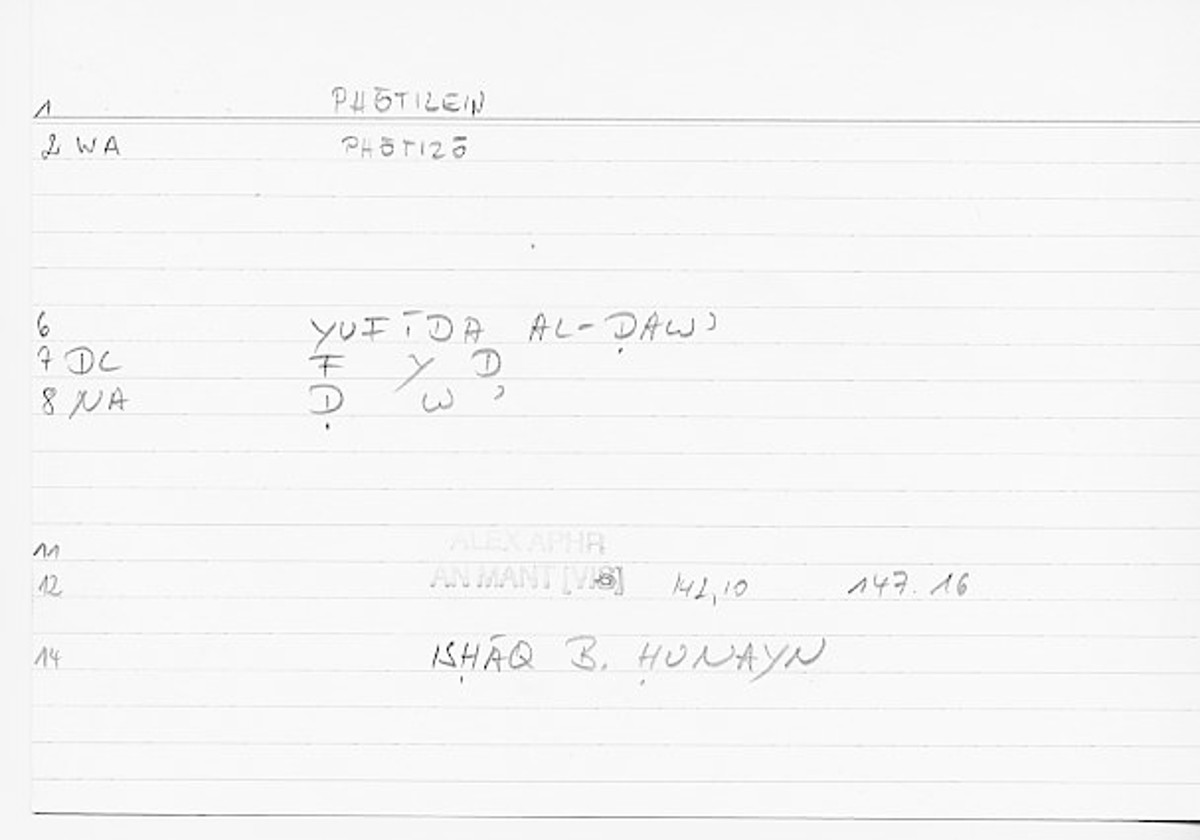 1 PHŌTIZEIN
2 WA PHŌTIZŌ
6 YUFĪDA AL-ḌAWʾ
7 DC F Y D
8 NA Ḍ W ʾ
11 ALEX APHR
12 AN MANT [VIS] 142,10 147.16
14 ISḤĀQ B. ḤUNAYN